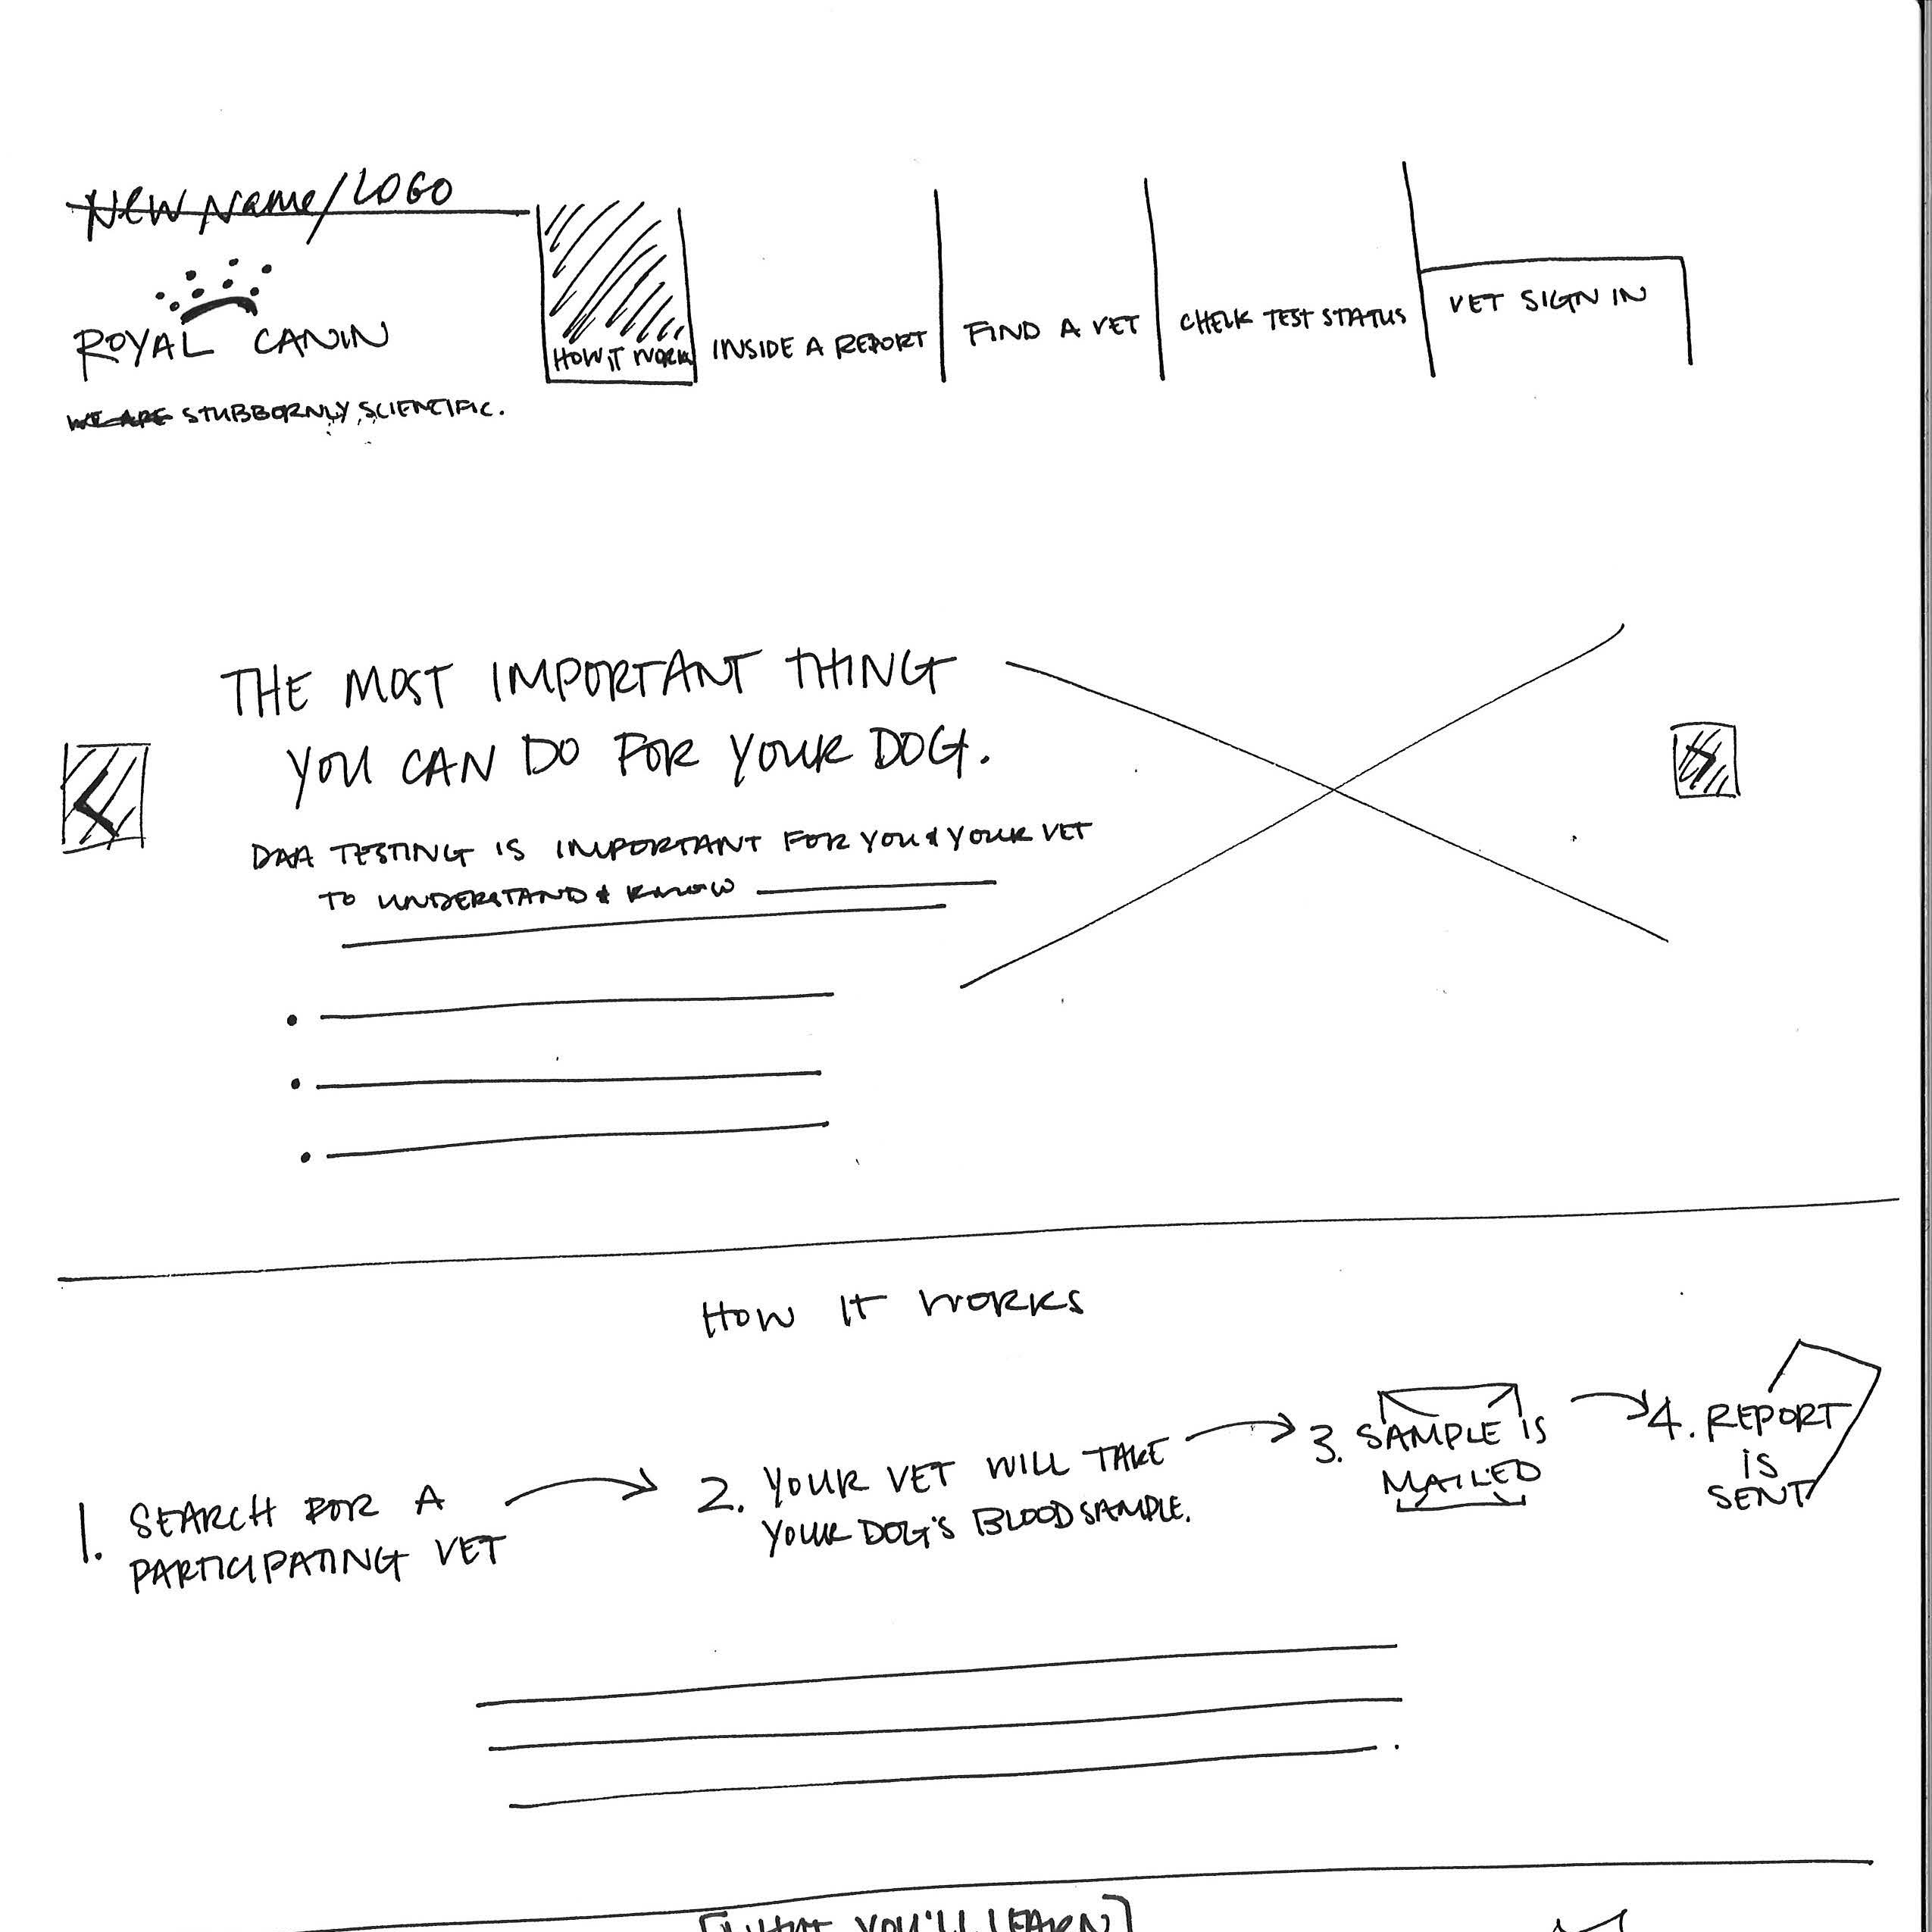 New Name/LOGO
ROYAL CANIN
WE ARE STUBBORNLY SCIENTIFIC.
HOW IT WORKS
INSIDE A REPORT
FIND A VET
CHECK TEST STATUS
VET SIGN IN
THE MOST IMPORTANT THING
YOU CAN DO FOR YOUR DOG.
DAA TESTING IS IMPORTANT FOR YOU & YOUR VET
TO UNDERSTAND & KNOW
HOW IT WORKS
1. SEARCH FOR A
PARTICIPATING VET
2. YOUR VET WILL TAKE
YOUR DOG'S BLOOD SAMPLE.
3. SAMPLE IS
MAILED
4. REPORT
IS
SENT
[WHAT YOU'LL LEARN]